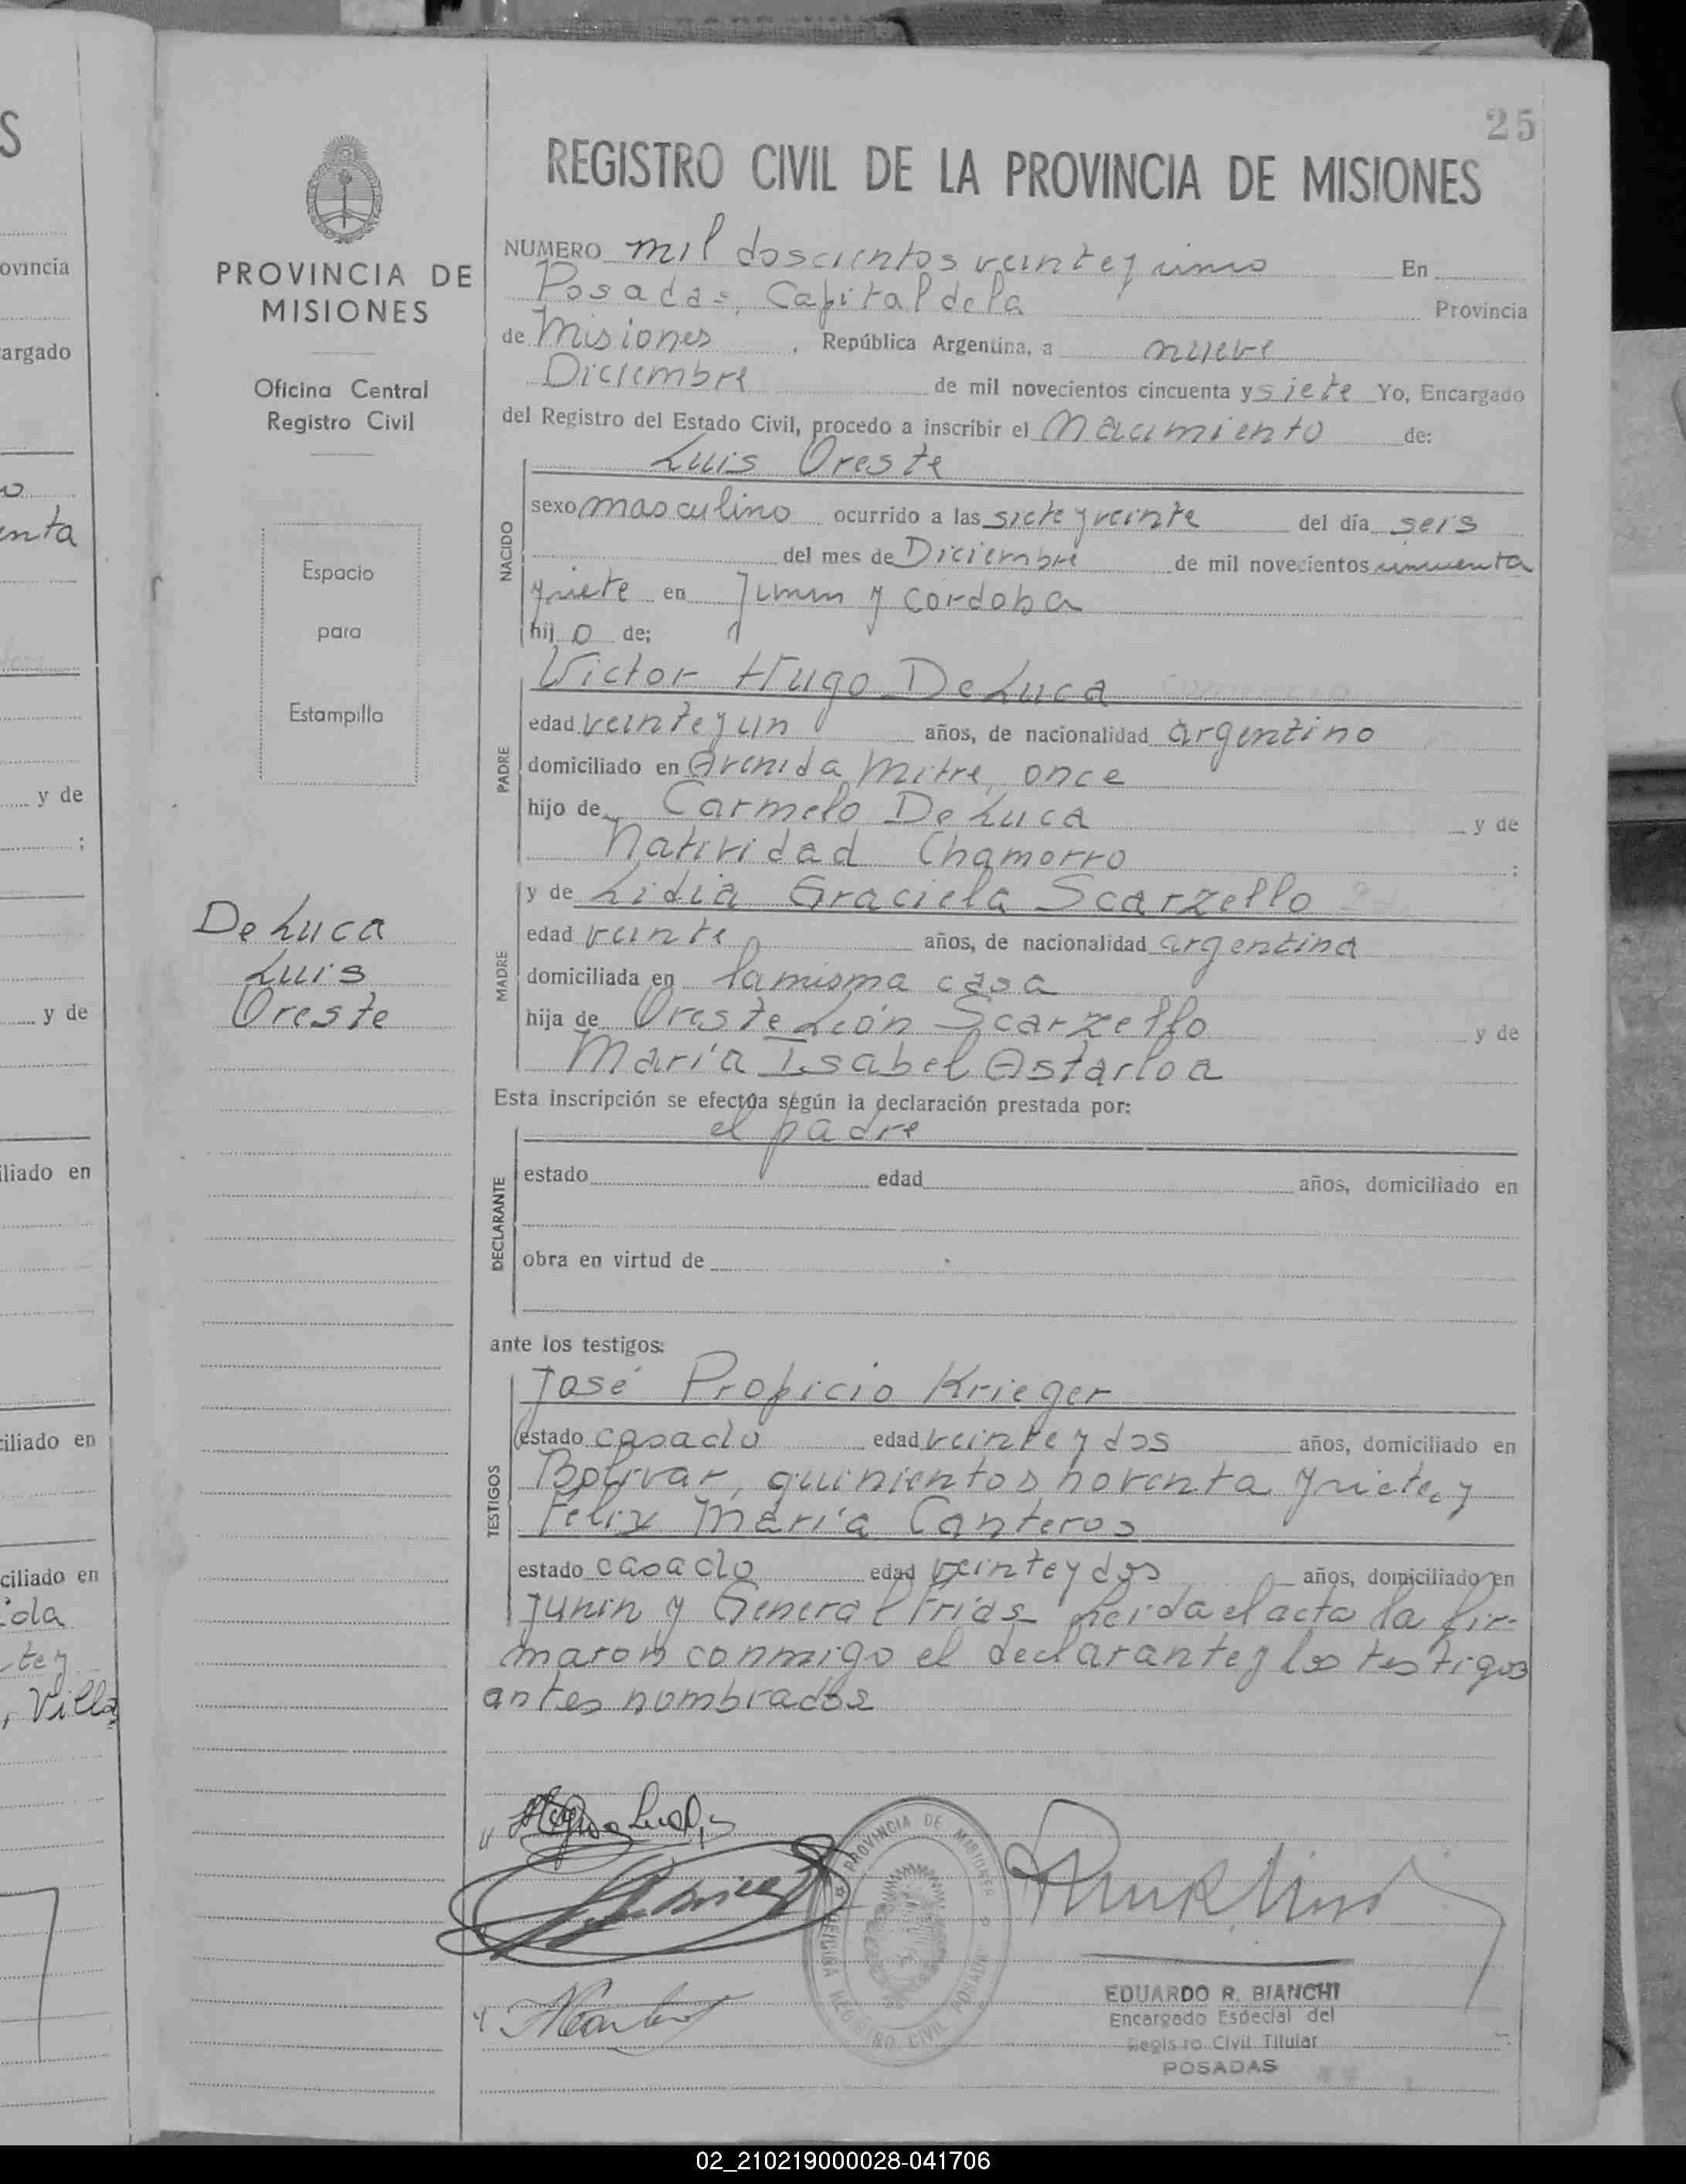 25
REGISTRO CIVIL DE LA PROVINCIA DE MISIONES
PROVINCIA DE
MISIONES
Oficina Central
Registro Civil
Espacio
para
Estampilla
De Luca
Luis
Oreste
NUMERO mil doscientos veinte y uno En
Posadas, Capital de la Provincia
de Misiones, República Argentina, a nueve
Diciembre de mil novecientos cincuenta y siete Yo, Encargado
del Registro del Estado Civil, procedo a inscribir el Nacimiento de:
Luis Oreste
NACIDO
sexo masculino ocurrido a las siete y veinte del día seis
del mes de Diciembre de mil novecientos cincuenta
y siete en Junin y Cordoba
hijo de;
Victor Hugo De Luca
PADRE
edad veinte y un años, de nacionalidad argentino
domiciliado en Avenida Mitre, once
hijo de Carmelo De Luca y de
Natividad Chamorro ;
y de Lidia Graciela Scarzello
MADRE
edad veinte años, de nacionalidad argentina
domiciliada en la misma casa
hija de Oreste León Scarzello y de
María Isabel Astarloa
Esta inscripción se efectúa según la declaración prestada por:
el padre
DECLARANTE
estado edad años, domiciliado en
obra en virtud de
ante los testigos:
José Propicio Krieger
TESTIGOS
estado casado edad veinte y dos años, domiciliado en
Bolivar, quinientos noventa y siete, y
Felix María Canteros
estado casado edad veinte y dos años, domiciliado en
Junin y General Frias. Leida el acta la fir-
maron conmigo el declarante y los testigos
antes nombrados
PROVINCIA DE MISIONES
OFICINA REGISTRO CIVIL POSADAS
EDUARDO R. BIANCHI
Encargado Especial del
Registro Civil Titular
POSADAS
S
ovincia
argado
enta
y de
;
y de
iliado en
ciliado en
ciliado en
ida
te y
, Villa
02_210219000028-041706